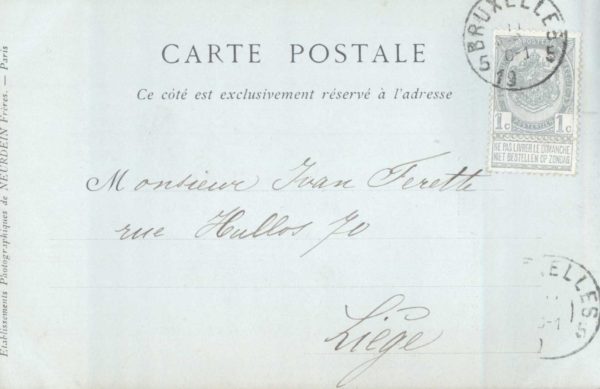 CARTE POSTALE
Ce côté est exclusivement réservé à l'adresse
BRUXELLES 5
5
19
1c 1c
NE PAS LIVRER LE DIMANCHE
NIET BESTELLEN OP ZONDAG
Monsieur Ivan Ferette
rue Hullos 70
Liége
XELLES 5
Etablissements Photographiques de NEURDEIN Frères. — Paris